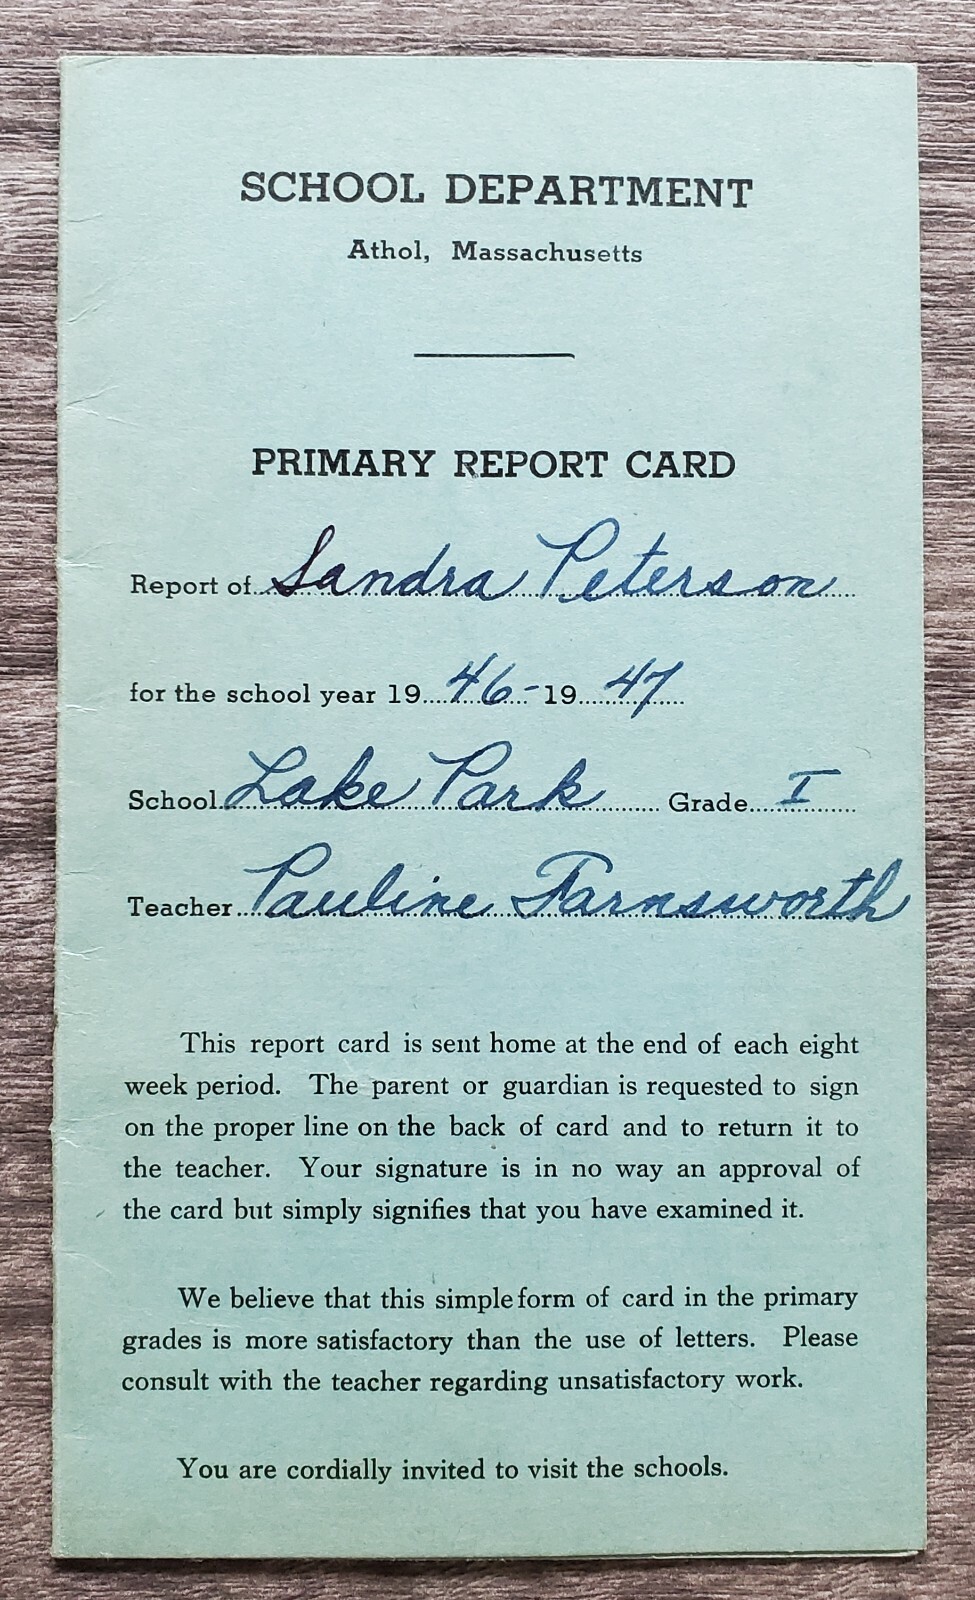 SCHOOL DEPARTMENT
Athol, Massachusetts
PRIMARY REPORT CARD
Report of Sandra Peterson
for the school year 19 46 - 19 47
School Lake Park Grade I
Teacher Pauline Farnsworth
This report card is sent home at the end of each eight
week period. The parent or guardian is requested to sign
on the proper line on the back of card and to return it to
the teacher. Your signature is in no way an approval of
the card but simply signifies that you have examined it.
We believe that this simple form of card in the primary
grades is more satisfactory than the use of letters. Please
consult with the teacher regarding unsatisfactory work.
You are cordially invited to visit the schools.